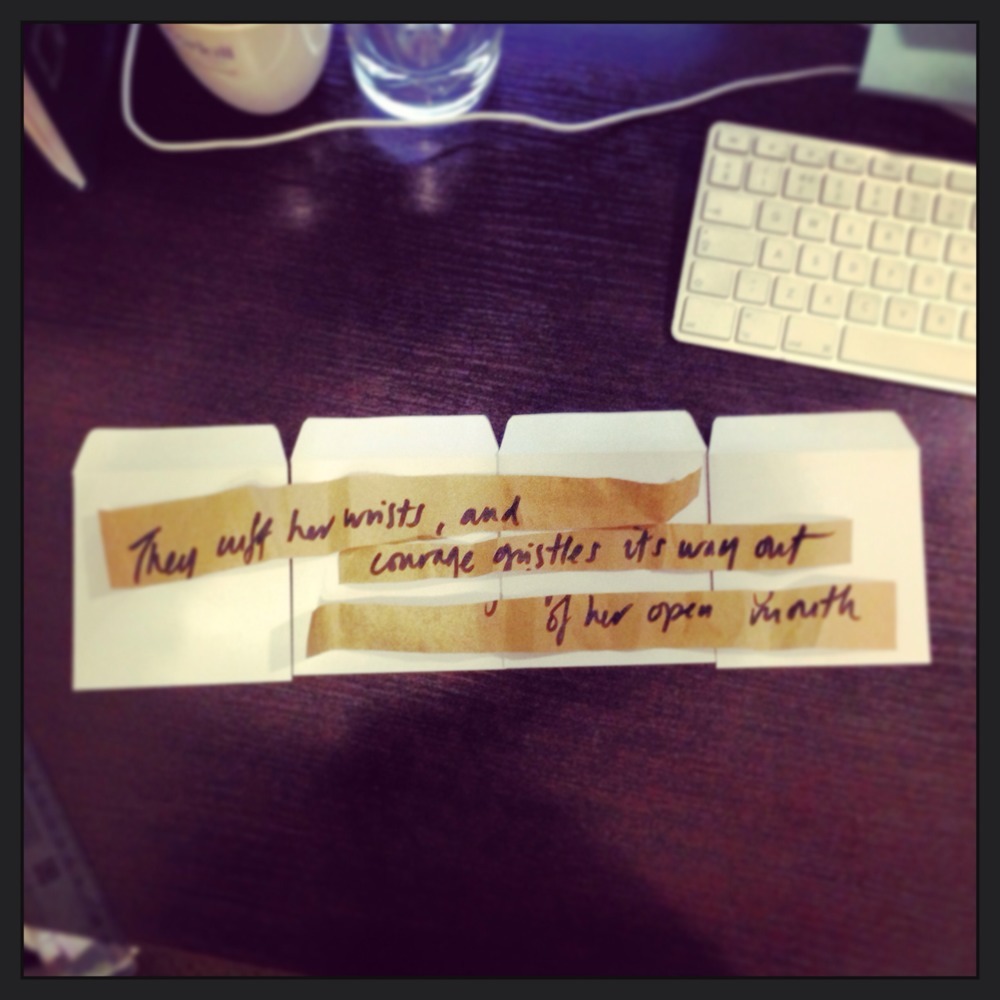 They cuff her wrists, and
courage gristles it's way out
of her open mouth